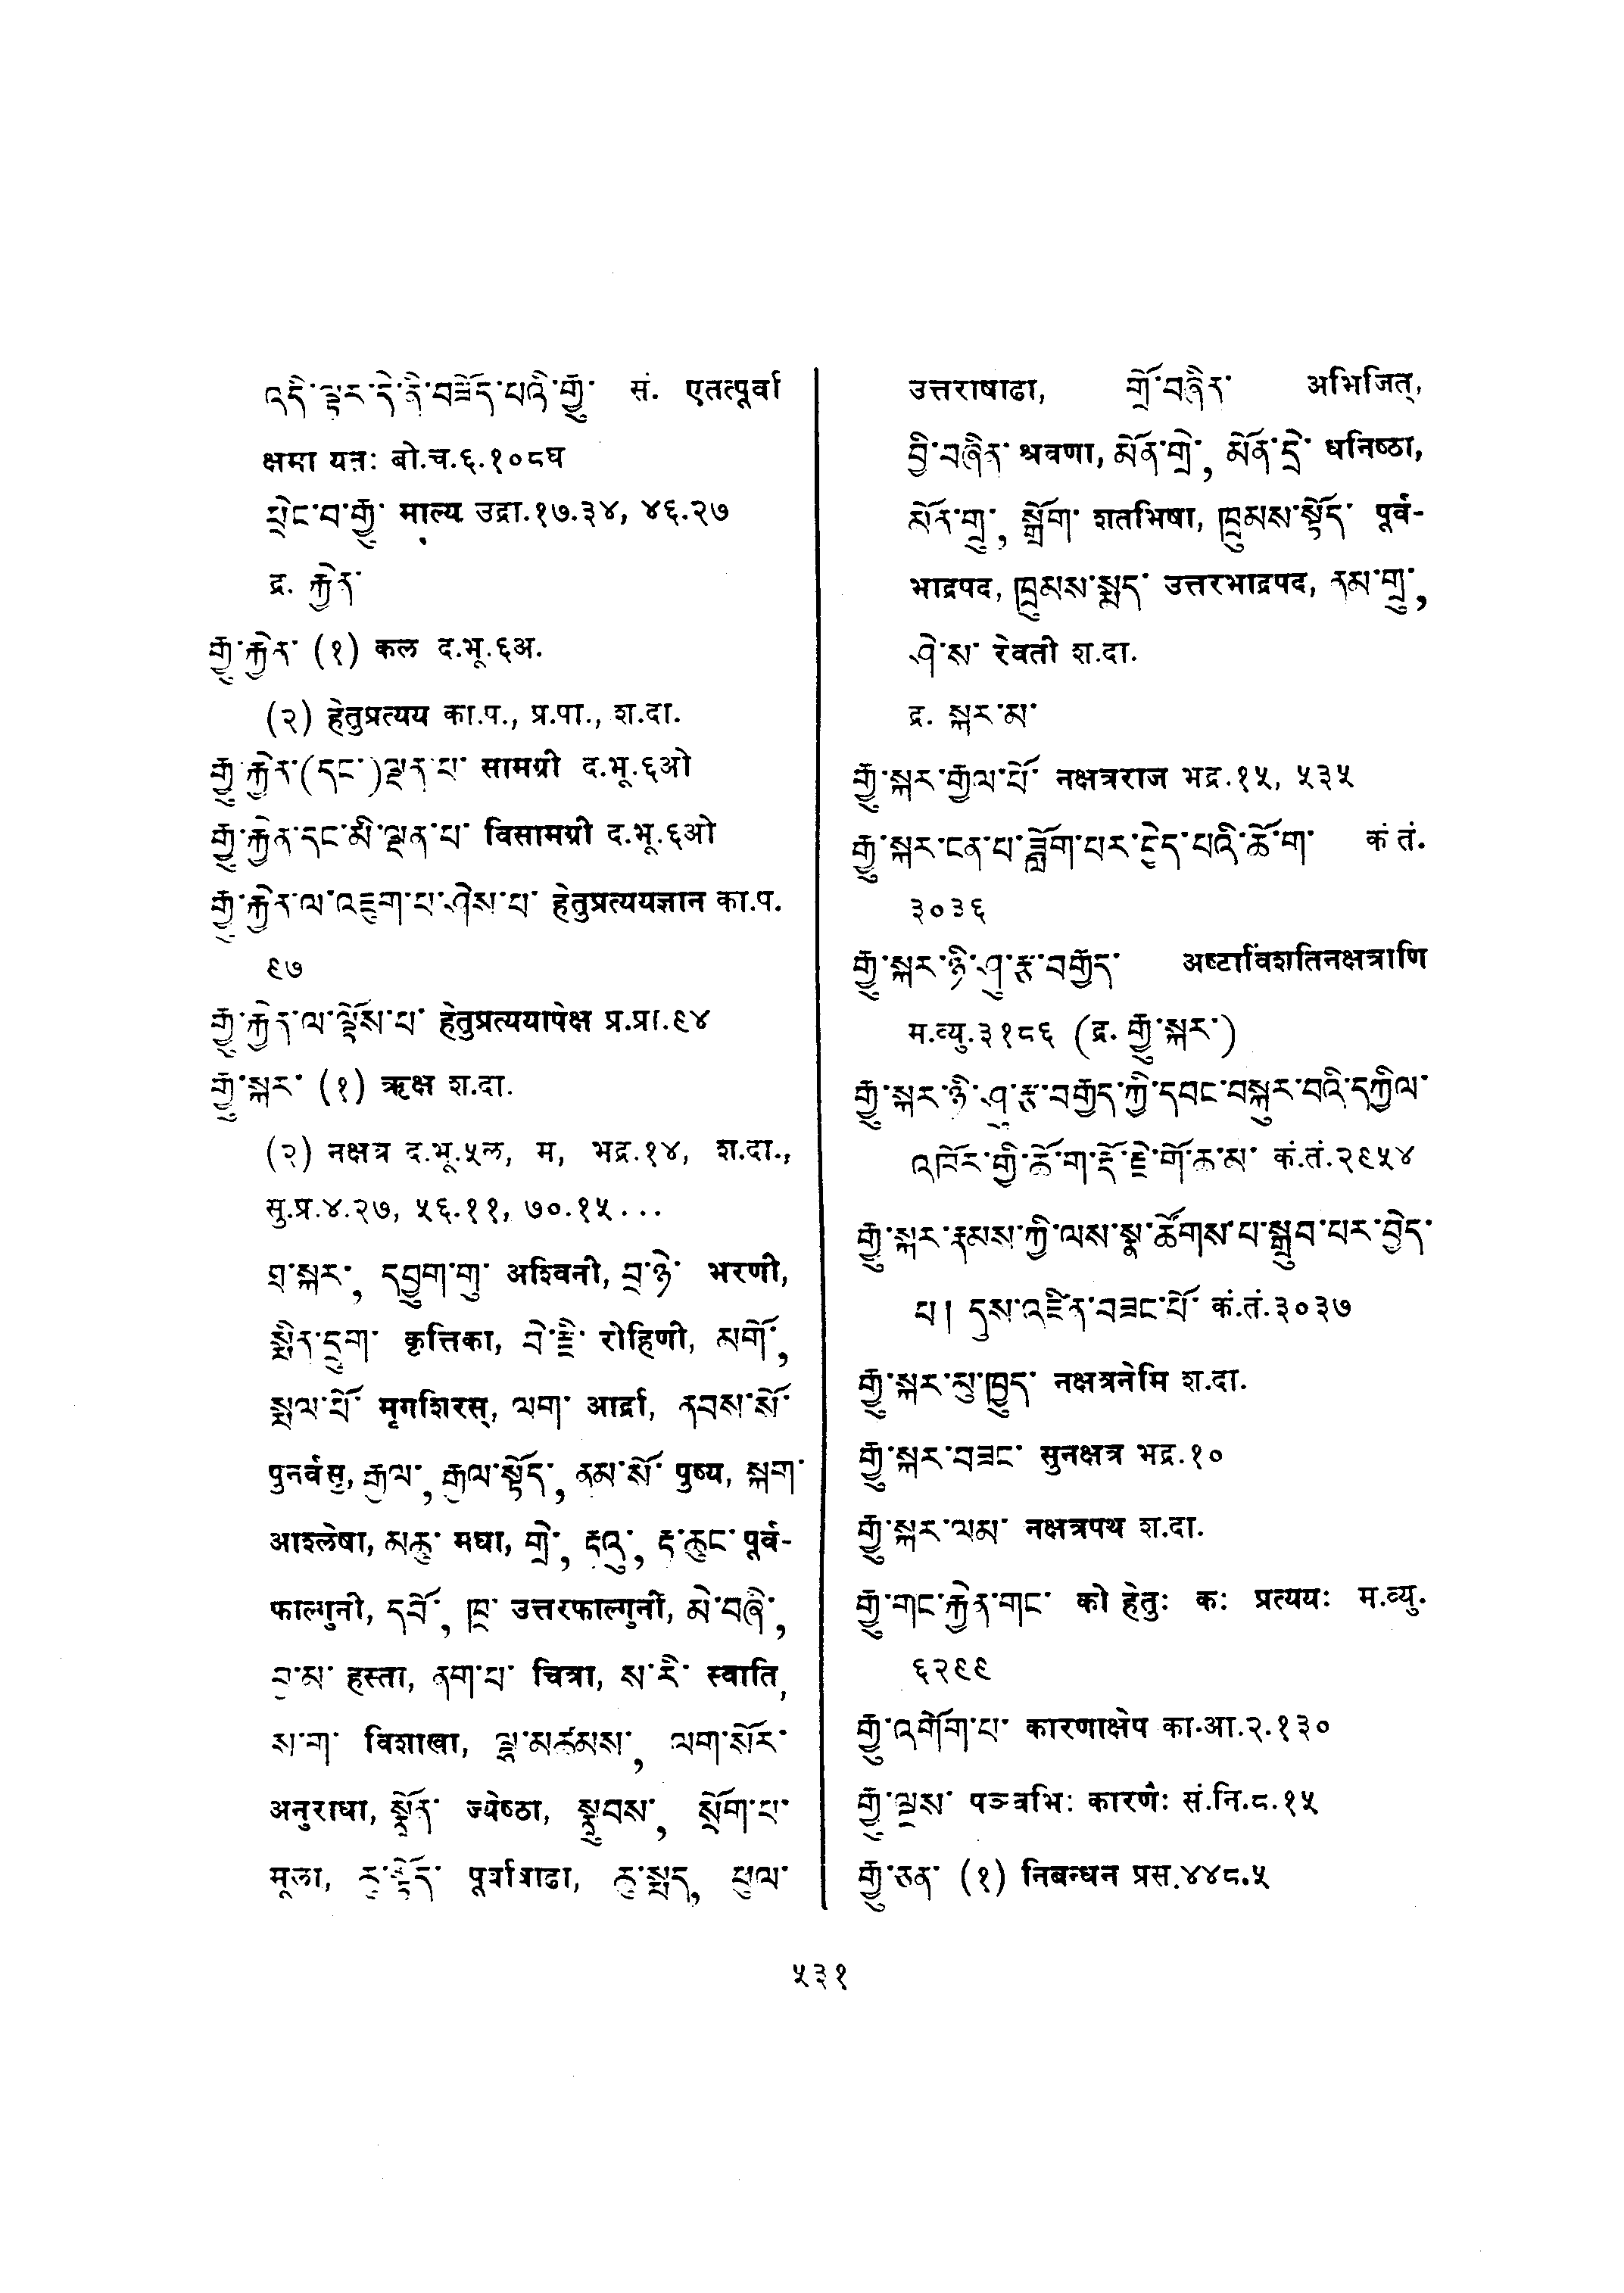 འདི་ལྟར་དེ་ནི་བཟོད་པའི་རྒྱུ་ सं. एतत्पूर्वा
क्षमा यतः बो.च.६.१०८घ
ཕྲེང་བ་རྒྱུ་ माल्य उद्रा.१७.३४, ४६.२७
द्र. རྐྱེན་
རྒྱུ་རྐྱེན་ (१) कल द.भू.६अ.
(२) हेतुप्रत्यय का.प., प्र.पा., श.दा.
རྒྱུ་རྐྱེན་(དང་)ལྡན་པ་ सामग्री द.भू.६ओ
རྒྱུ་རྐྱེན་དང་མི་ལྡན་པ་ विसामग्री द.भू.६ओ
རྒྱུ་རྐྱེན་ལ་འཇུག་པ་ཤེས་པ་ हेतुप्रत्ययज्ञान का.प.
९७
རྒྱུ་རྐྱེན་ལ་ལྟོས་པ་ हेतुप्रत्ययापेक्ष प्र.प्रा.९४
རྒྱུ་སྐར་ (१) ऋक्ष श.दा.
(२) नक्षत्र द.भू.५ल, म, भद्र.१४, श.दा.,
सु.प्र.४.२७, ५६.११, ७०.१५...
ཐ་སྐར་, དབྱུག་གུ་ अश्विनी, བྲ་ཉེ་ भरणी,
སྨིན་དྲུག་ कृत्तिका, བེ་རྫི་ रोहिणी, མགོ་,
སྨལ་པོ་ मृगशिरस्, ལག་ आर्द्रा, ནབས་སོ་
पुनर्वसु, རྒྱལ་, རྒྱལ་སྟོད་, ནམ་སོ་ पुष्य, སྐག་
आश्लेषा, མཆུ་ मघा, གྲེ་, རྟའུ་, རྟ་ཆུང་ पूर्व-
फाल्गुनी, དབོ་, ཁྲ་ उत्तरफाल्गुनी, མེ་བཞི་,
བྱ་མ་ हस्ता, ནག་པ་ चित्रा, ས་རི་ स्वाति,
ས་ག་ विशाखा, ལྷ་མཚམས་, ལག་སོར་
अनुराधा, སྣྲོན་ ज्येष्ठा, སྣྲུབས་, སྲོག་པ་
मूला, ཆུ་སྟོད་ पूर्वाषाढा, ཆུ་སྨད, ཕུལ་
उत्तराषाढा, གྲོ་བཞིན་ अभिजित्,
བྱི་བཞིན་ श्रवणा, མོན་གྲེ་, མོན་དྲེ་ धनिष्ठा,
མོན་གྲུ་, སྒྲོག་ शतभिषा, ཁྲུམས་སྟོད་ पूर्व-
भाद्रपद, ཁྲུམས་སྨད་ उत्तरभाद्रपद, ནམ་གྲུ་,
ཤེ་ས་ रेवती श.दा.
द्र. སྐར་མ་
རྒྱུ་སྐར་རྒྱལ་པོ་ नक्षत्रराज भद्र.१५, ५३५
རྒྱུ་སྐར་ངན་པ་ཟློག་པར་བྱེད་པའི་ཆོ་ག་ कं तं.
३०३६
རྒྱུ་སྐར་ཉི་ཤུ་རྩ་བརྒྱད་ अष्टाविंशतिनक्षत्राणि
म.व्यु.३१८६ (द्र. རྒྱུ་སྐར་)
རྒྱུ་སྐར་ཉི་ཤུ་རྩ་བརྒྱད་ཀྱི་དབང་བསྐུར་བའི་དཀྱིལ་
འཁོར་གྱི་ཆོ་ག་རྡོ་རྗེ་གོ་ཆ་མ་ कं.तं.२९५४
རྒྱུ་སྐར་རྣམས་ཀྱི་ལས་སྣ་ཚོགས་པ་སྒྲུབ་པར་བྱེད་
པ། དུས་འཛིན་བཟང་པོ་ कं.तं.३०३७
རྒྱུ་སྐར་མུ་ཁྱུད་ नक्षत्रनेमि श.दा.
རྒྱུ་སྐར་བཟང་ सुनक्षत्र भद्र.१०
རྒྱུ་སྐར་ལམ་ नक्षत्रपथ श.दा.
རྒྱུ་གང་རྐྱེན་གང་ को हेतुः कः प्रत्ययः म.व्यु.
६२९९
རྒྱུ་འགོག་པ་ कारणाक्षेप का.आ.२.१३०
རྒྱུ་ལྔས་ पञ्चभिः कारणैः सं.नि.८.१५
རྒྱུ་ཅན་ (१) निबन्धन प्रस.४४८.५
५३१